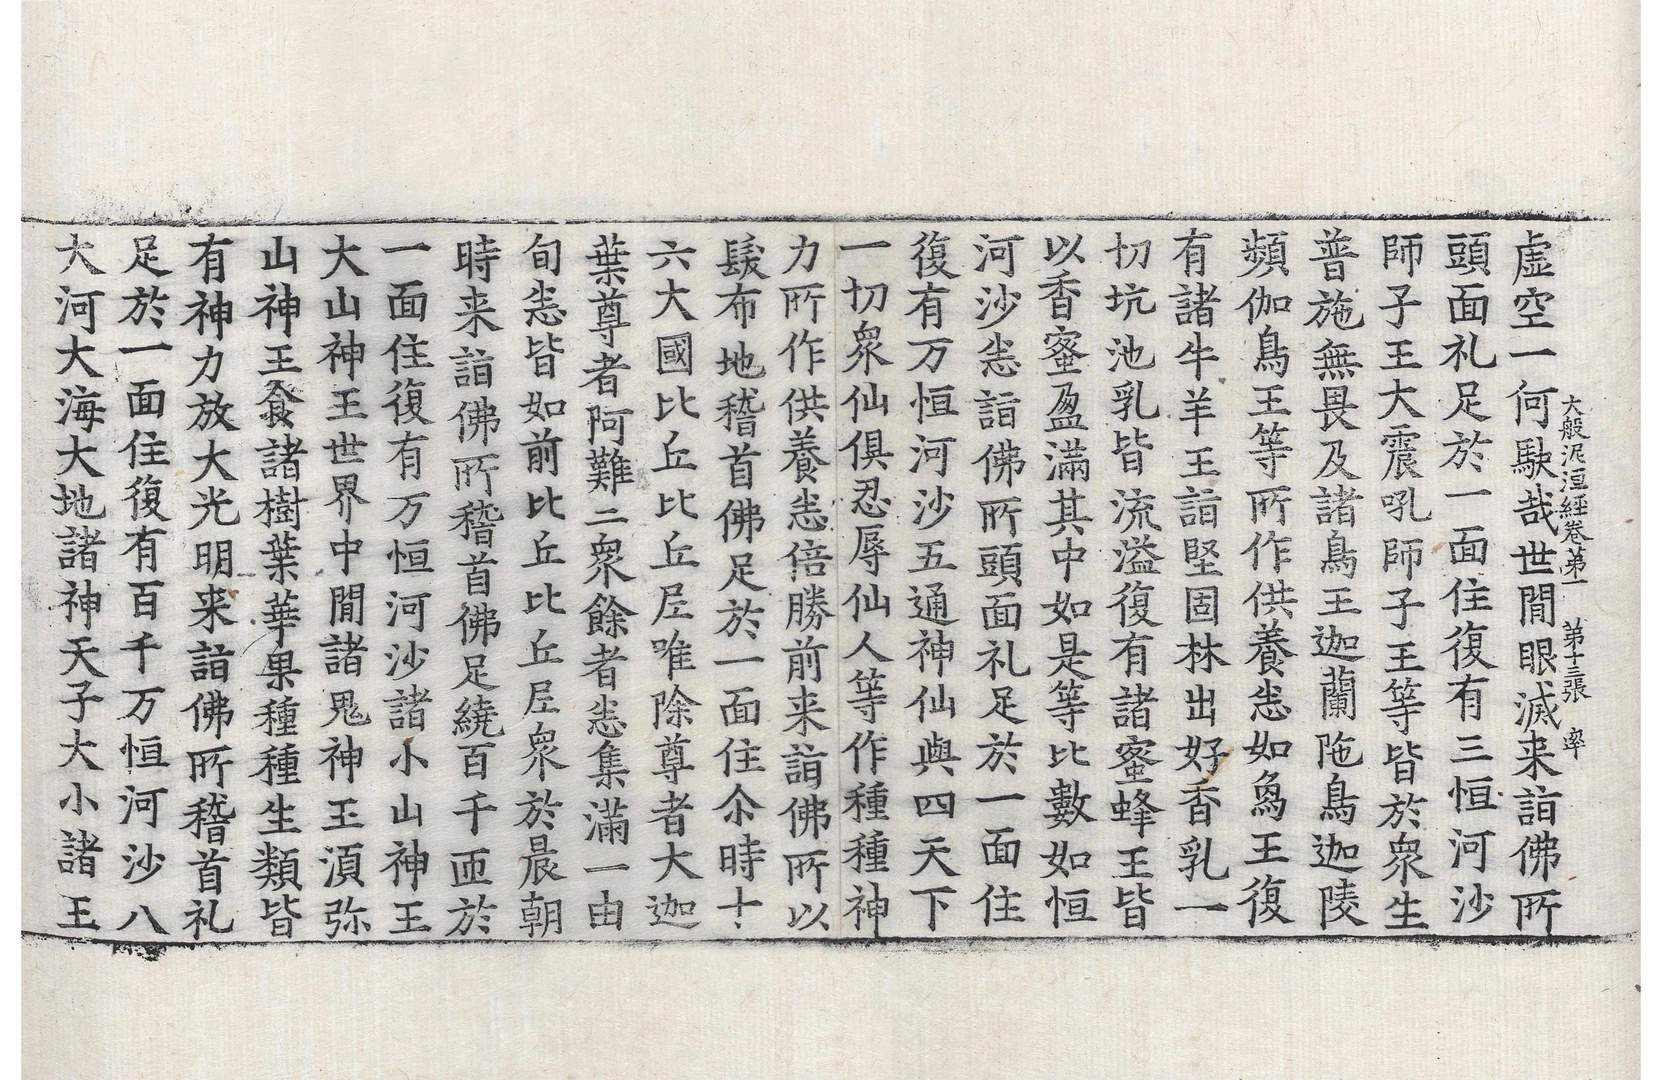 大般泥洹経卷第一 第十三張 率
虛空一何駃哉世閒眼滅来詣佛所
頭面礼足於一面住復有三恒河沙
師子王大震吼師子王等皆於衆生
普施無畏及諸鳥王迦蘭陁鳥迦陵
頻伽鳥王等所作供養悉如鳬王復
有諸牛羊王詣堅固林出好香乳一
切坑池乳皆流溢復有諸蜜蜂王皆
以香蜜盈滿其中如是等比數如恒
河沙悉詣佛所頭面礼足於一面住
復有万恒河沙五通神仙與四天下
一切衆仙俱忍辱仙人等作種種神
力所作供養悉倍勝前来詣佛所以
髮布地稽首佛足於一面住尒時十
六大國比丘比丘尼唯除尊者大迦
葉尊者阿難二衆餘者悉集滿一由
旬悉皆如前比丘比丘尼衆於晨朝
時来詣佛所稽首佛足繞百千匝於
一面住復有万恒河沙諸小山神王
大山神王世界中閒諸鬼神王湏弥
山神王衾諸樹葉華果種種生類皆
有神力放大光明来詣佛所稽首礼
足於一面住復有百千万恒河沙八
大河大海大地諸神天子大小諸王